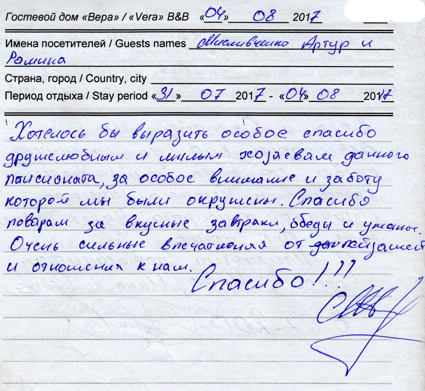 Гостевой дом «Вера» / «Vera» B&B «04» 08 2017
Имена посетителей / Guests names Мисливченко Артур и
Романа
Страна, город / Country, city
Период отдыха / Stay period «31» 07 2017 - «04» 08 2017
Хотелось бы выразить особое спасибо
дружелюбным и милым хозяевам данного
пансионата, за особое внимание и заботу
которой мы были окружены. Спасибо
поварам за вкусные завтраки, обеды и ужины.
Очень сильные впечатления от
и отношения к нам.
Спасибо!!!